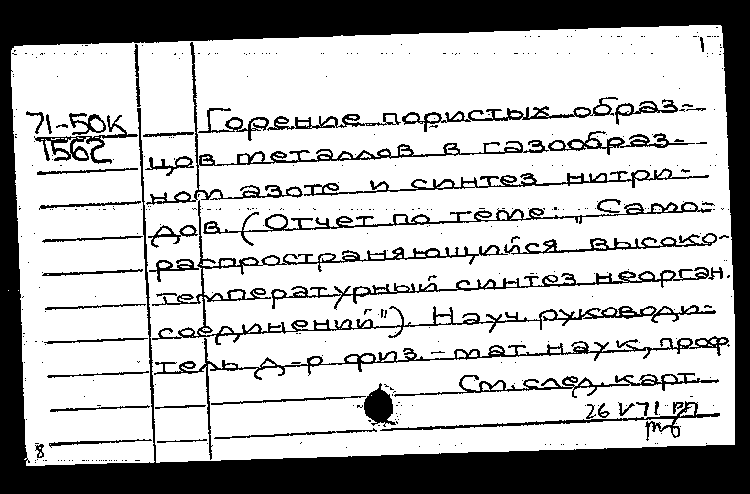 1
71-50К
1562
Горение пористых образ-
цов металлов в газообраз-
ном азоте и синтез нитри-
дов. (Отчет по теме: „Само-
распространяющийся высоко-
температурный синтез неорган.
соединений"). Науч. руководи-
тель д-р физ.-мат. наук, проф
См. след. карт.
26 V 71
8